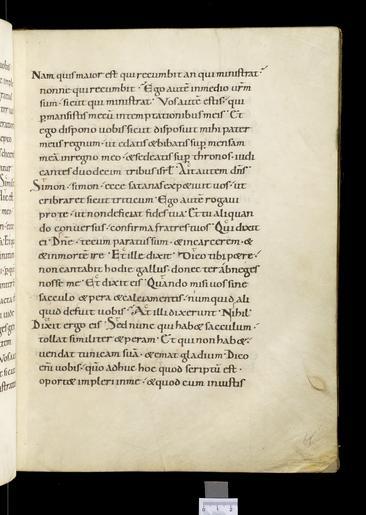 Nam quis maior est qui recumbit an qui ministrat
nonne qui recumbit · Ego autē in medio urm̄
sum · sicut qui ministrat · Vos autē estis · qui
p̱mansistis mecū in temptationibus meis · Et
ego dispono uobis sicut disposuit mihi pater
meus regnum · ut edatis & bibatis sup̱ mensam
meā in regno meo · & sedeatis sup̱ thronos · iudi
cantes duodecim tribus isrl̄ · Ait autem dn̄s
Simon · simon · ecce satanas expetiuit uos · ut
cribraret sicut triticum · Ego autē rogaui
pro te · ut non deficiat fides tua · Et tu aliquan
do conuersus · confirma fratres tuos · Qui dixit
ei · Dn̄e · tecum paratus sum · & in carcerem · &
& in mortē ire · Et ille dixit · Dico tibi petre ·
non cantabit hodie gallus · donec ter abneges
nosse me · Et dixit eis · Quando misi uos sine
sacculo & pera & calciamentis · numquid ali
quid defuit uobis · At illi dixerunt · Nihil ·
Dixit ergo eis · Sed nunc qui hab& sacculum ·
tollat similiter & peram · Et qui non hab& ·
uendat tunicam suā · & emat gladium · Dico
eni̅ uobis · qm̄o adhuc hoc quod scriptū est ·
oport& impleri in me · & quod cum iniustis